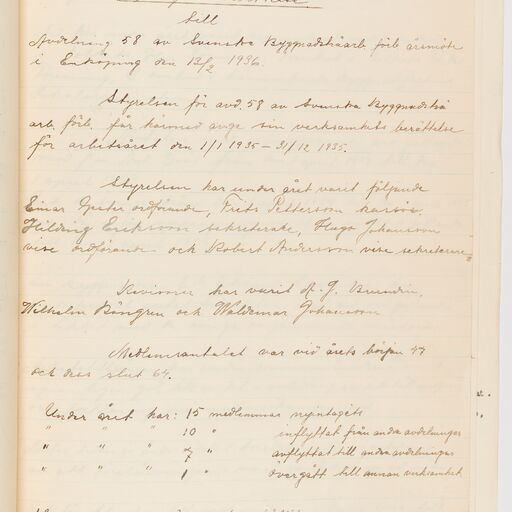 till
Avdelning 58 av Svenska Byggnadsträarb. förb. årsmöte
i Enköping den 13/2 1936.
Styrelsen för avd. 58 av Svenska Byggnadsträ
arb. förb. får härmed avge sin verksamhets berättelse
för arbetsåret den 1/1 1935 – 31/12 1935.
Styrelsen har under året varit följande
Einar ordförande, Frits Pettersson kassör.
Hilding Eriksson sekreterare, Hugo Johansson
vise ordförande och Robert Andersson vise sekreterare.
Revisorer har varit J. Brundin,
Wilhelm Bängren och Waldemar Johansson
Medlemsantalet var vid årets början 47
och dess slut 64.
Under året har: 15 medlemmar nyintagits
" " " 10 " inflyttat från andra avdelningar
" " " 7 " avflyttat till andra avdelningar
" " " 1 " övergått till annan verksamhet